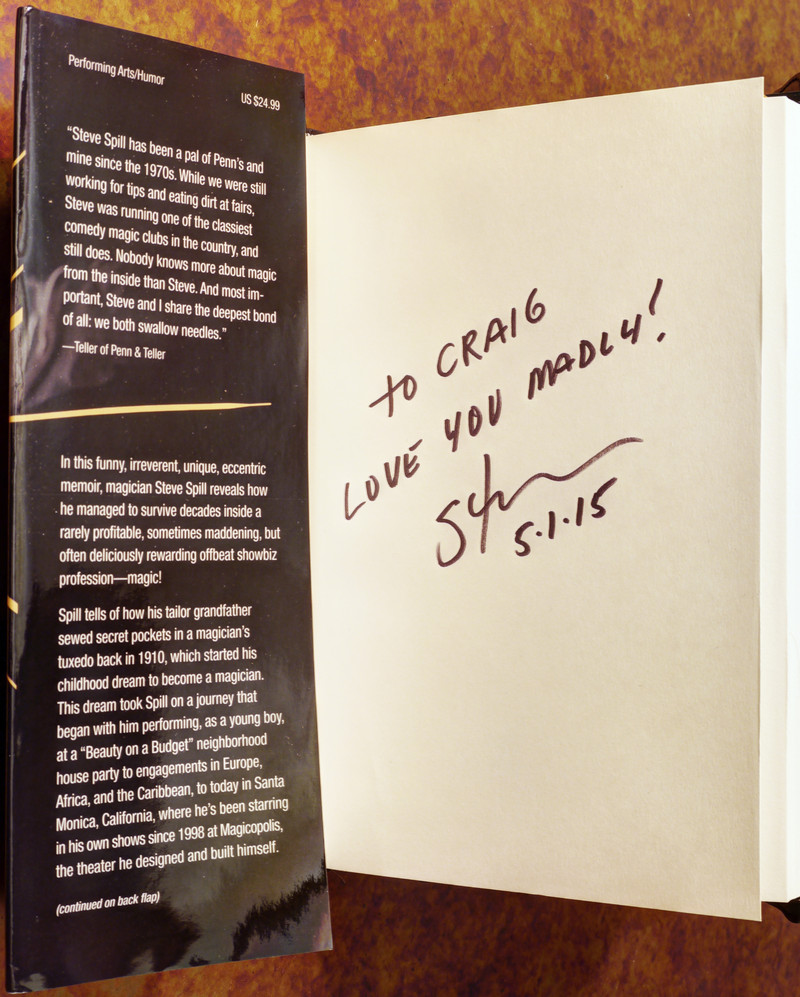 Performing Arts/Humor
US $24.99
“Steve Spill has been a pal of Penn’s and
mine since the 1970s. While we were still
working for tips and eating dirt at fairs,
Steve was running one of the classiest
comedy magic clubs in the country, and
still does. Nobody knows more about magic
from the inside than Steve. And most im-
portant, Steve and I share the deepest bond
of all: we both swallow needles.”
—Teller of Penn & Teller
In this funny, irreverent, unique, eccentric
memoir, magician Steve Spill reveals how
he managed to survive decades inside a
rarely profitable, sometimes maddening, but
often deliciously rewarding offbeat showbiz
profession—magic!
Spill tells of how his tailor grandfather
sewed secret pockets in a magician’s
tuxedo back in 1910, which started his
childhood dream to become a magician.
This dream took Spill on a journey that
began with him performing, as a young boy,
at a “Beauty on a Budget” neighborhood
house party to engagements in Europe,
Africa, and the Caribbean, to today in Santa
Monica, California, where he’s been starring
in his own shows since 1998 at Magicopolis,
the theater he designed and built himself.
(continued on back flap)
TO CRAIG
LOVE YOU MADLY!
5.1.15